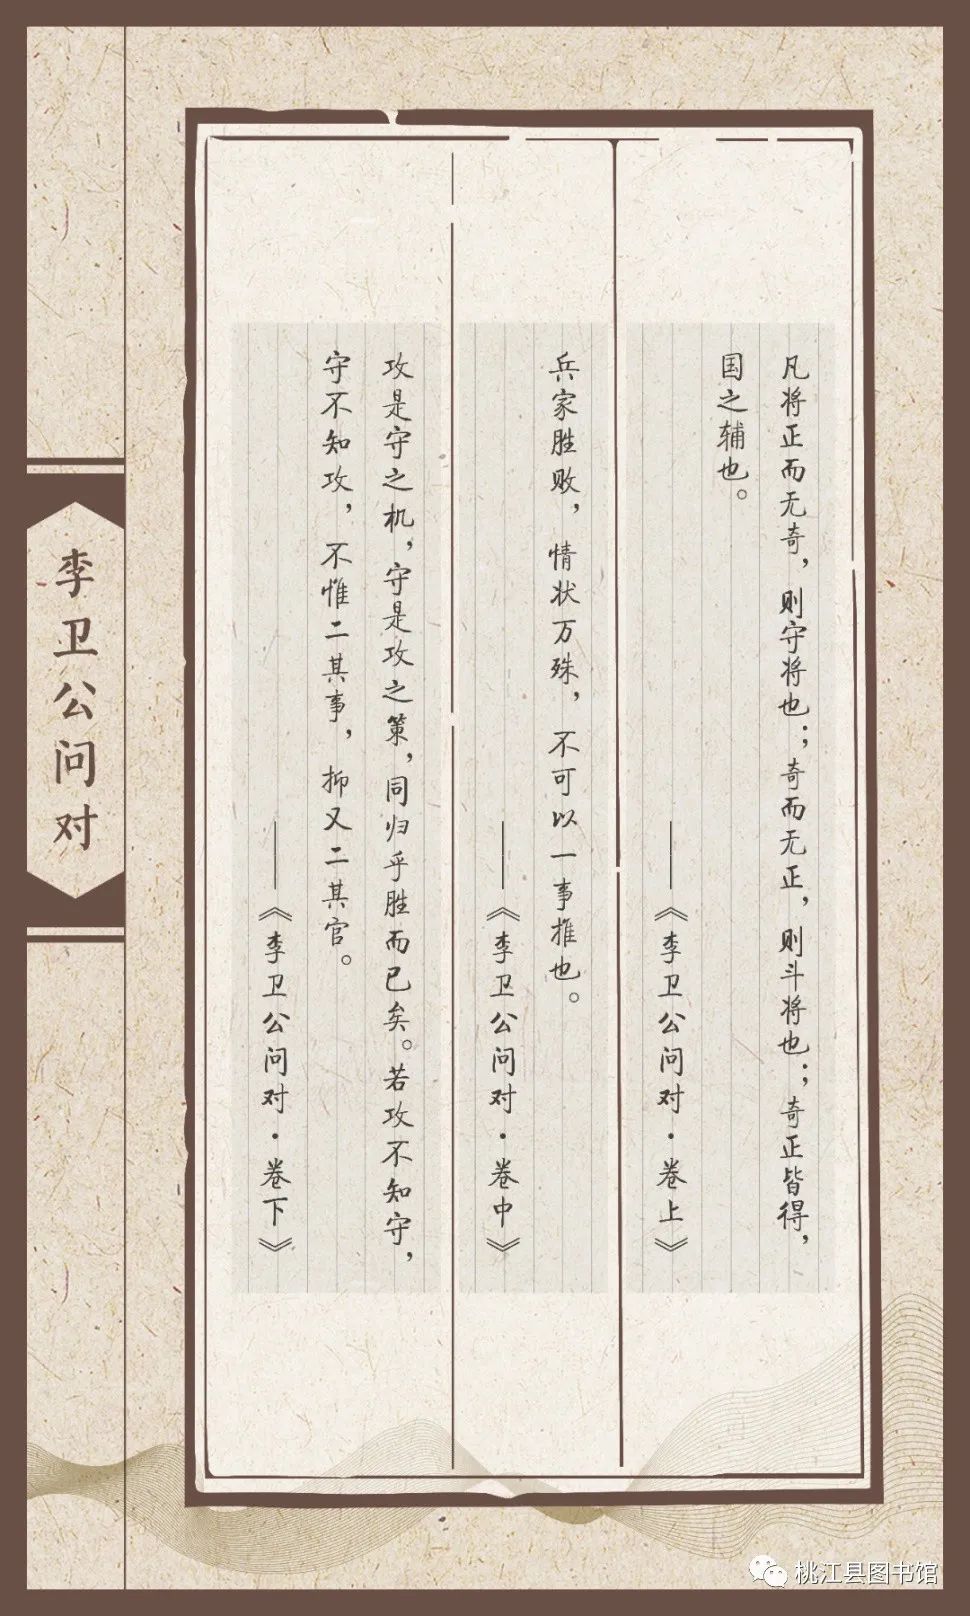 凡将正而无奇，则守将也；奇而无正，则斗将也；奇正皆得，
国之辅也。
——《李卫公问对·卷上》
兵家胜败，情状万殊，不可以一事推也。
——《李卫公问对·卷中》
攻是守之机，守是攻之策，同归乎胜而已矣。若攻不知守，
守不知攻，不惟二其事，抑又二其官。
——《李卫公问对·卷下》
李卫公问对
桃江县图书馆